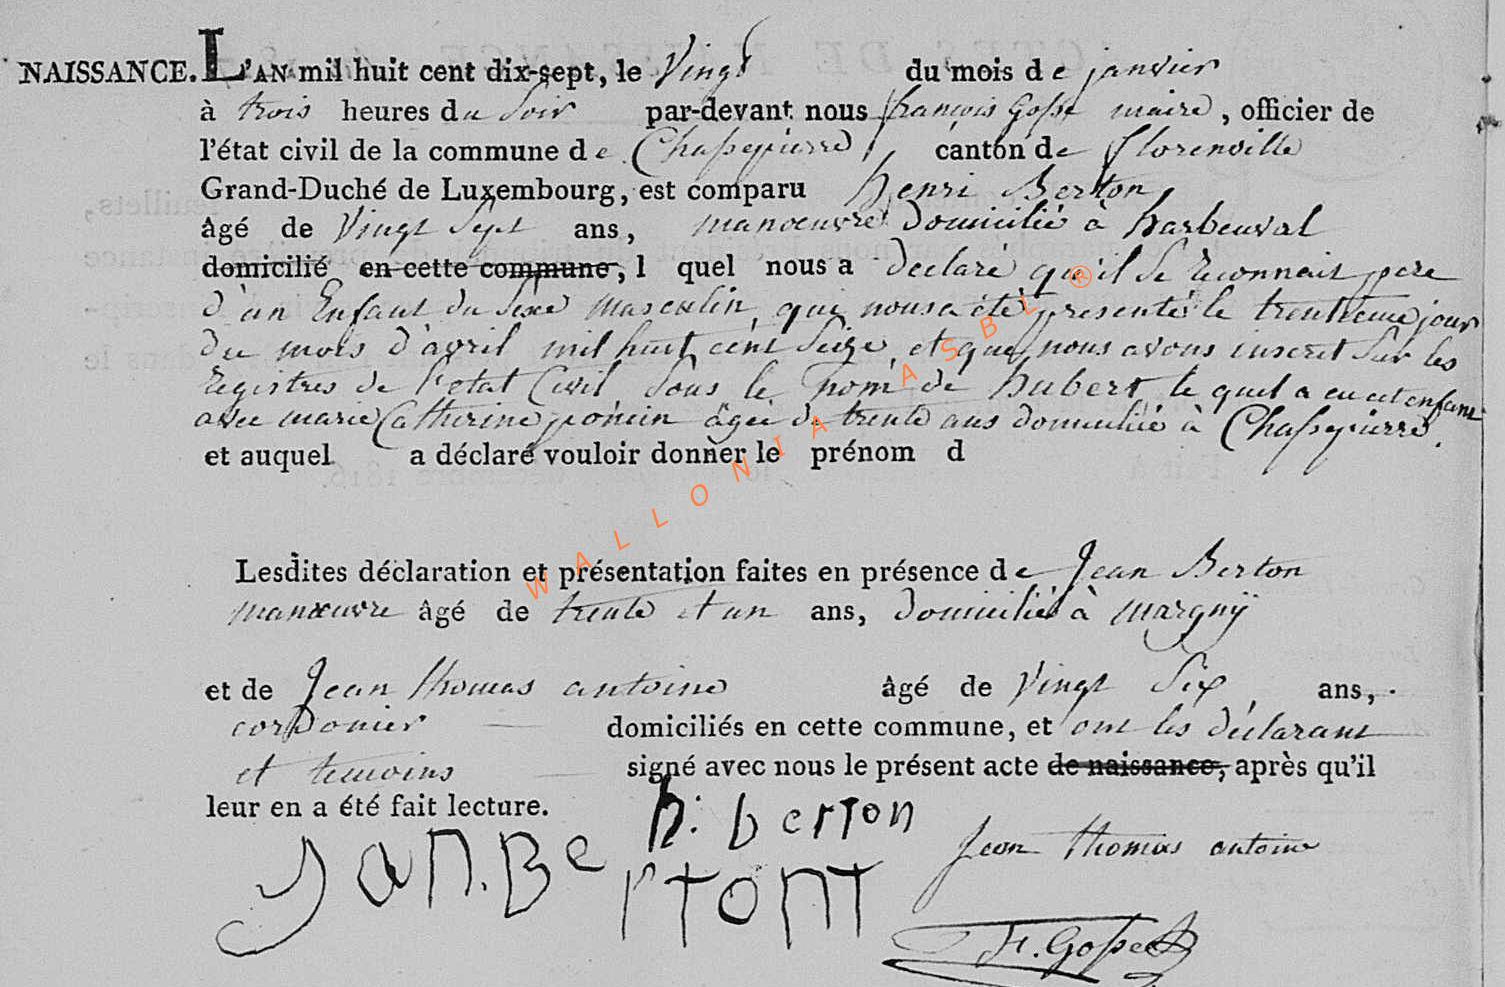 NAISSANCE. L'AN mil huit cent dix-sept, le Vingt du mois de janvier
à trois heures du Soir par-devant nous françois Gosse maire, officier de
l'état civil de la commune de Chassepierre canton de florenville
Grand-Duché de Luxembourg, est comparu henri Berton
âgé de Vingt Sept ans, manœuvre domicilié à harbeuval
domicilié en cette commune, l quel nous a déclaré qu'il Se reconnait pere
d'un Enfant du Sexe masculin, qui nous a été presenté le trentieme jour
du mois d'avril mil huit cent Seize, et que nous avons inscrit Sur les
registres de l'etat Civil Sous le nom de hubert le quel a eu cet enfant
avec marie Catherine poncin âgée de trente ans domiciliée à Chassepierre.
et auquel a déclaré vouloir donner le prénom d
Lesdites déclaration et présentation faites en présence de Jean Berton
manœuvre âgé de trente et un ans, domicilié à margnÿ
et de Jean thomas antoine âgé de Vingt Six ans,
cordonier domiciliés en cette commune, et ont les déclarant
et temoins signé avec nous le présent acte de naissance, après qu'il
leur en a été fait lecture.
h: berton
Jan. Bertont
Jean thomas antoine
F. Gosse
WALLONIA ASBL ®